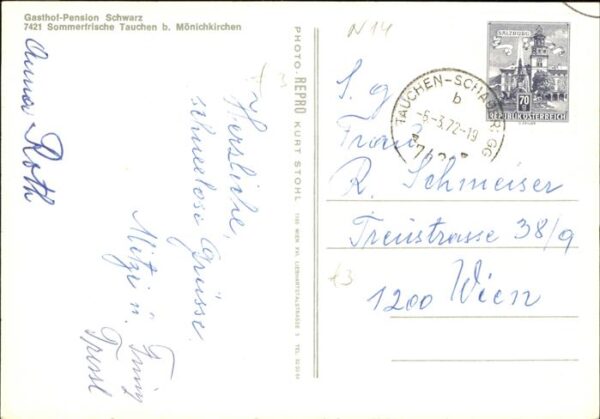 Gasthof-Pension Schwarz
7421 Sommerfrische Tauchen b. Mönichkirchen
Anna Roth
Herzliche,
schneelose Grüsse.
Mitzi u.
PHOTO-REPRO KURT STOHL
1160 WIEN XVI, LIEBHARTSTALSTRASSE
TEL.
N14
SALZBURG
70
REPUBLIK ÖSTERREICH
TAUCHEN-SCHAUEREGG
b
-6.-3.72-19
S. g.
Frau
R. Schmeiser
Treustrasse 38/9
1200 Wien